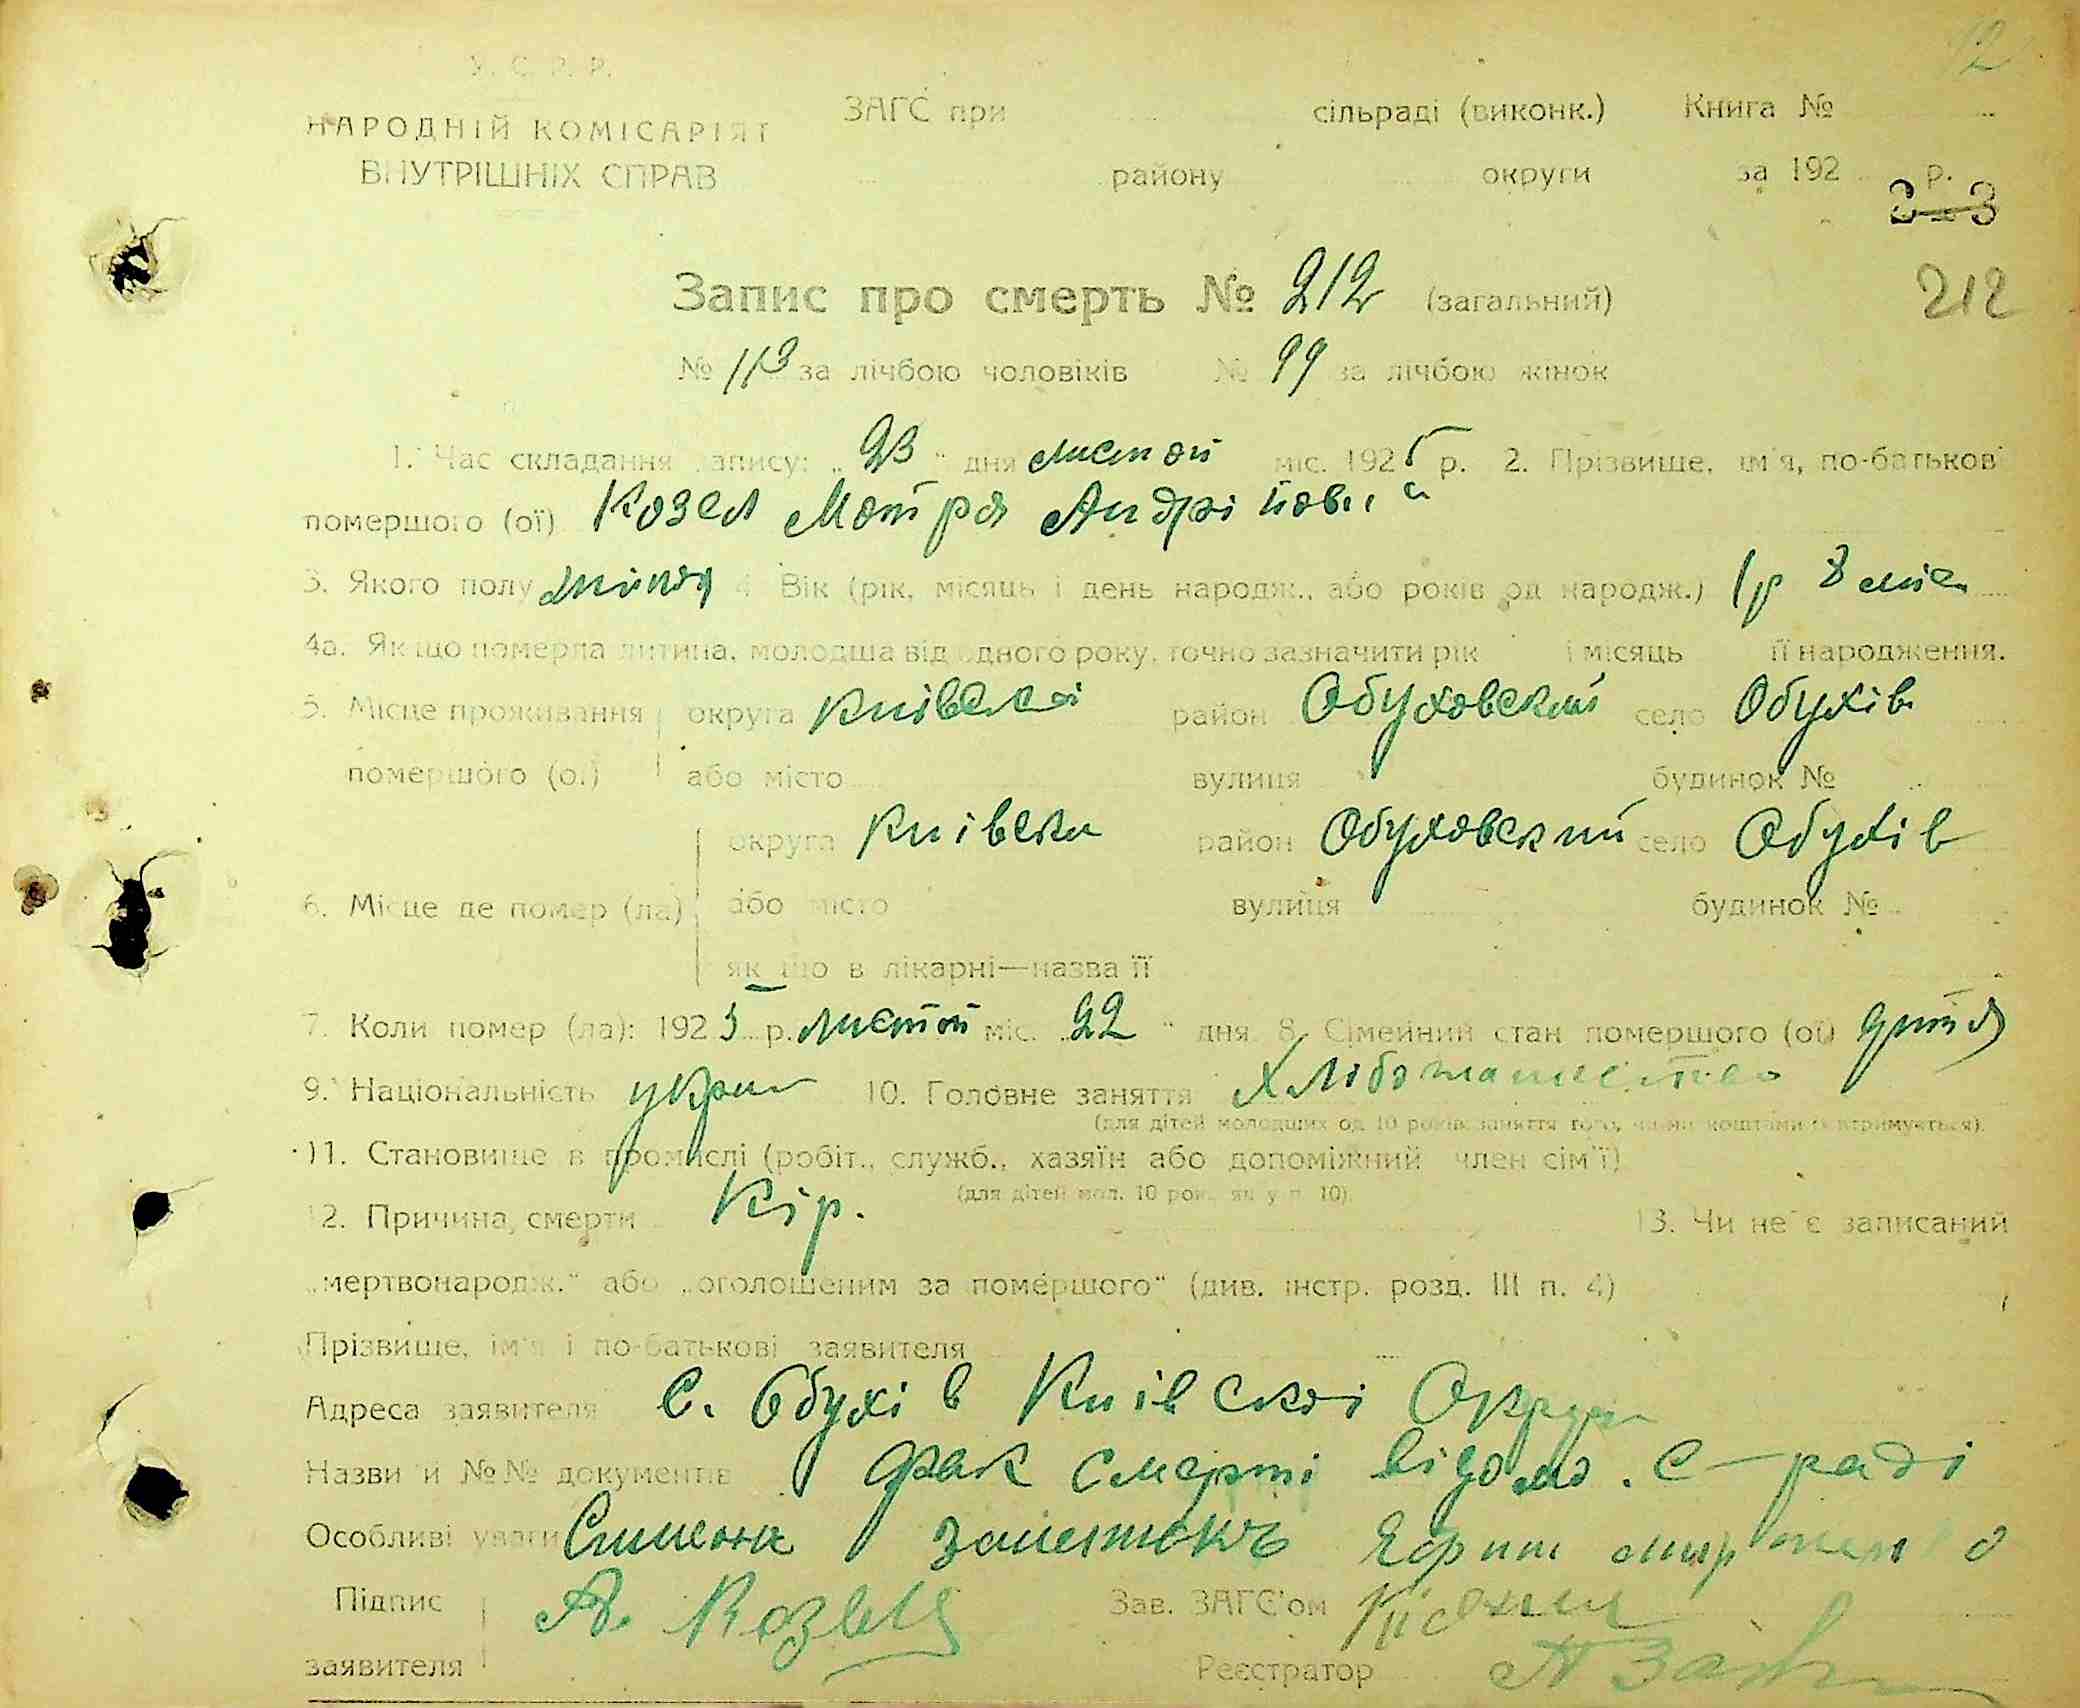 12
У. С. Р. Р.
НАРОДНІЙ КОМІСАРІЯТ
ВНУТРІШНІХ СПРАВ
ЗАГС при сільраді (виконк.) Книга №
району округи за 192 р.
212
Запис про смерть № 212 (загальний)
№ 113 за лічбою чоловіків № 99 за лічбою жінок
1. Час складання запису: „ 23 " дня листоп міс. 1925 р. 2. Прізвище, ім'я, по-батькові
помершого (ої) Козел Мотря Андрі
3. Якого полу жіноч 4. Вік (рік, місяць і день народж., або років од народж.) 1 р 8 міс
4а. Якщо померла дитина, молодша від одного року, точно зазначити рік і місяць її народження.
5. Місце проживання округа Київскоі район Обуховский село Обухів
помершого (ої) або місто вулиця будинок №
округа Київска район Обуховский село Обухів
6. Місце де помер (ла) або місто вулиця будинок №
як що в лікарні—назва її
7. Коли помер (ла): 1925 р. листоп міс. „ 22 " дня 8. Сімейний стан помершого (ої)
9. Національність украи 10. Головне заняття Хлібопашество
(для дітей молодших од 10 років заняття того, чиїми коштами утримується).
11. Становище в промислі (робіт., служб., хазяїн або допоміжний член сім'ї)
(для дітей мол. 10 рок. як у п. 10).
12. Причина смерти Кір. 13. Чи не є записаний
„мертвонародж." або „оголошеним за помершого" (див. інстр. розд. III п. 4)
Прізвище, ім'я і по-батькові заявителя
Адреса заявителя с. Обухів Київскоі Округи
Назви й №№ документів Фак смерті відомо С-раді
Особливі уваги
Підпис А. Козел Зав. ЗАГС'ом
заявителя Реєстратор